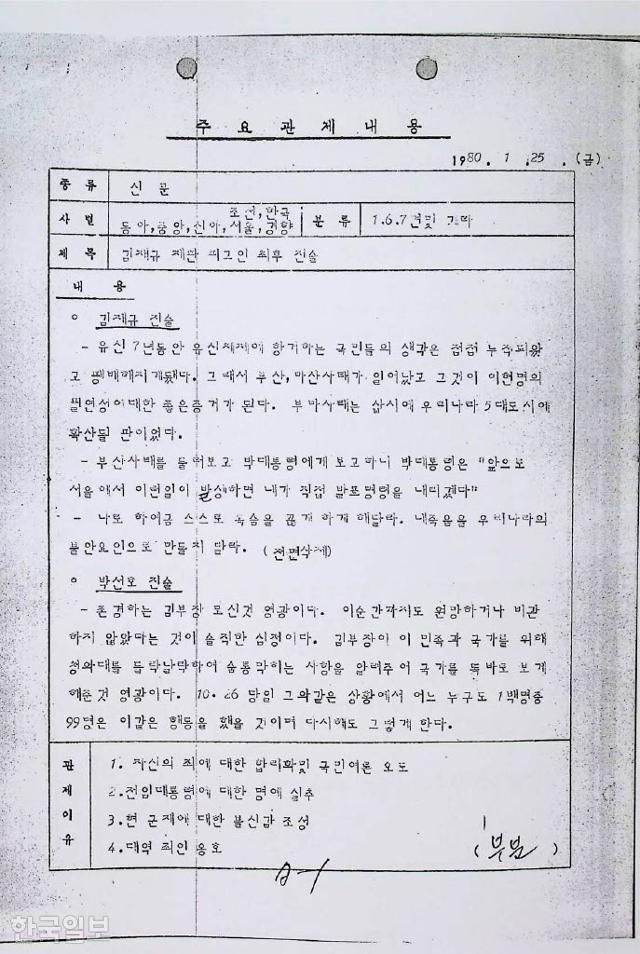 주 요 관 제 내 용
1980 . 1 .25 . (금)
종 류 신 문
사 별 조선,한국
동아,중앙,신아,서울,경향 분 류 1.6.7면및 가타
제 목 김재규 재판 피고인 최후 진술
내 용
○ 김재규 진술
- 유신 7년동안 유신체제에 항거하는 국민들의 생각은 점점 누적되왔
고 팽배해지게됐다. 그래서 부산,마산사태가 일어났고 그것이 이혁명의
필연성에대한 좋은증거가 된다. 부마사태는 삽시에 우리나라 5대도시에
확산될 판이었다.
- 부산사태를 둘러보고 박대통령에게 보고하니 박대통령은 "앞으로
서울에서 이런일이 발생하면 내가 직접 발포명령을 내리겠다"
- 나로 하여금 스스로 목숨을 끊게 하게 해달라. 내죽음을 우리나라의
불안요인으로 만들지 말라. (전면삭제)
○ 박선호 진술
- 존경하는 김부장 모신것 영광이다. 이순간까지도 원망하거나 비관
하지 않았다는 것이 솔직한 심정이다. 김부장이 이 민족과 국가를 위해
청와대를 들락날락하여 숨통막히는 사항을 알려주어 국가를 똑바로 보게
해준것 영광이다. 10.26 당일 그와같은 상황에서 어느 누구도 1백명중
99명은 이같은 행동을 했을 것이며 다시해도 그렇게 한다.
관 제 이 유
1. 자신의 죄에 대한 합리화및 국민여론 오도
2.전임대통령에 대한 명예 실추
3.현 군재에 대한 불신감 조성
4.대역 죄인 옹호
(부분)
A-1
한국일보